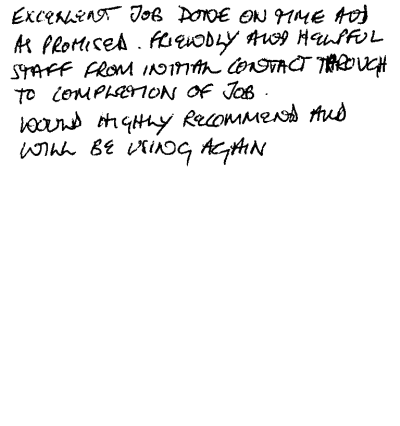 EXCELLENT JOB DONE ON TIME AND
AS PROMISED. FRIENDLY AND HELPFUL
STAFF FROM INITIAL CONTACT THROUGH
TO COMPLETION OF JOB.
WOULD HIGHLY RECOMMEND AND
WILL BE USING AGAIN